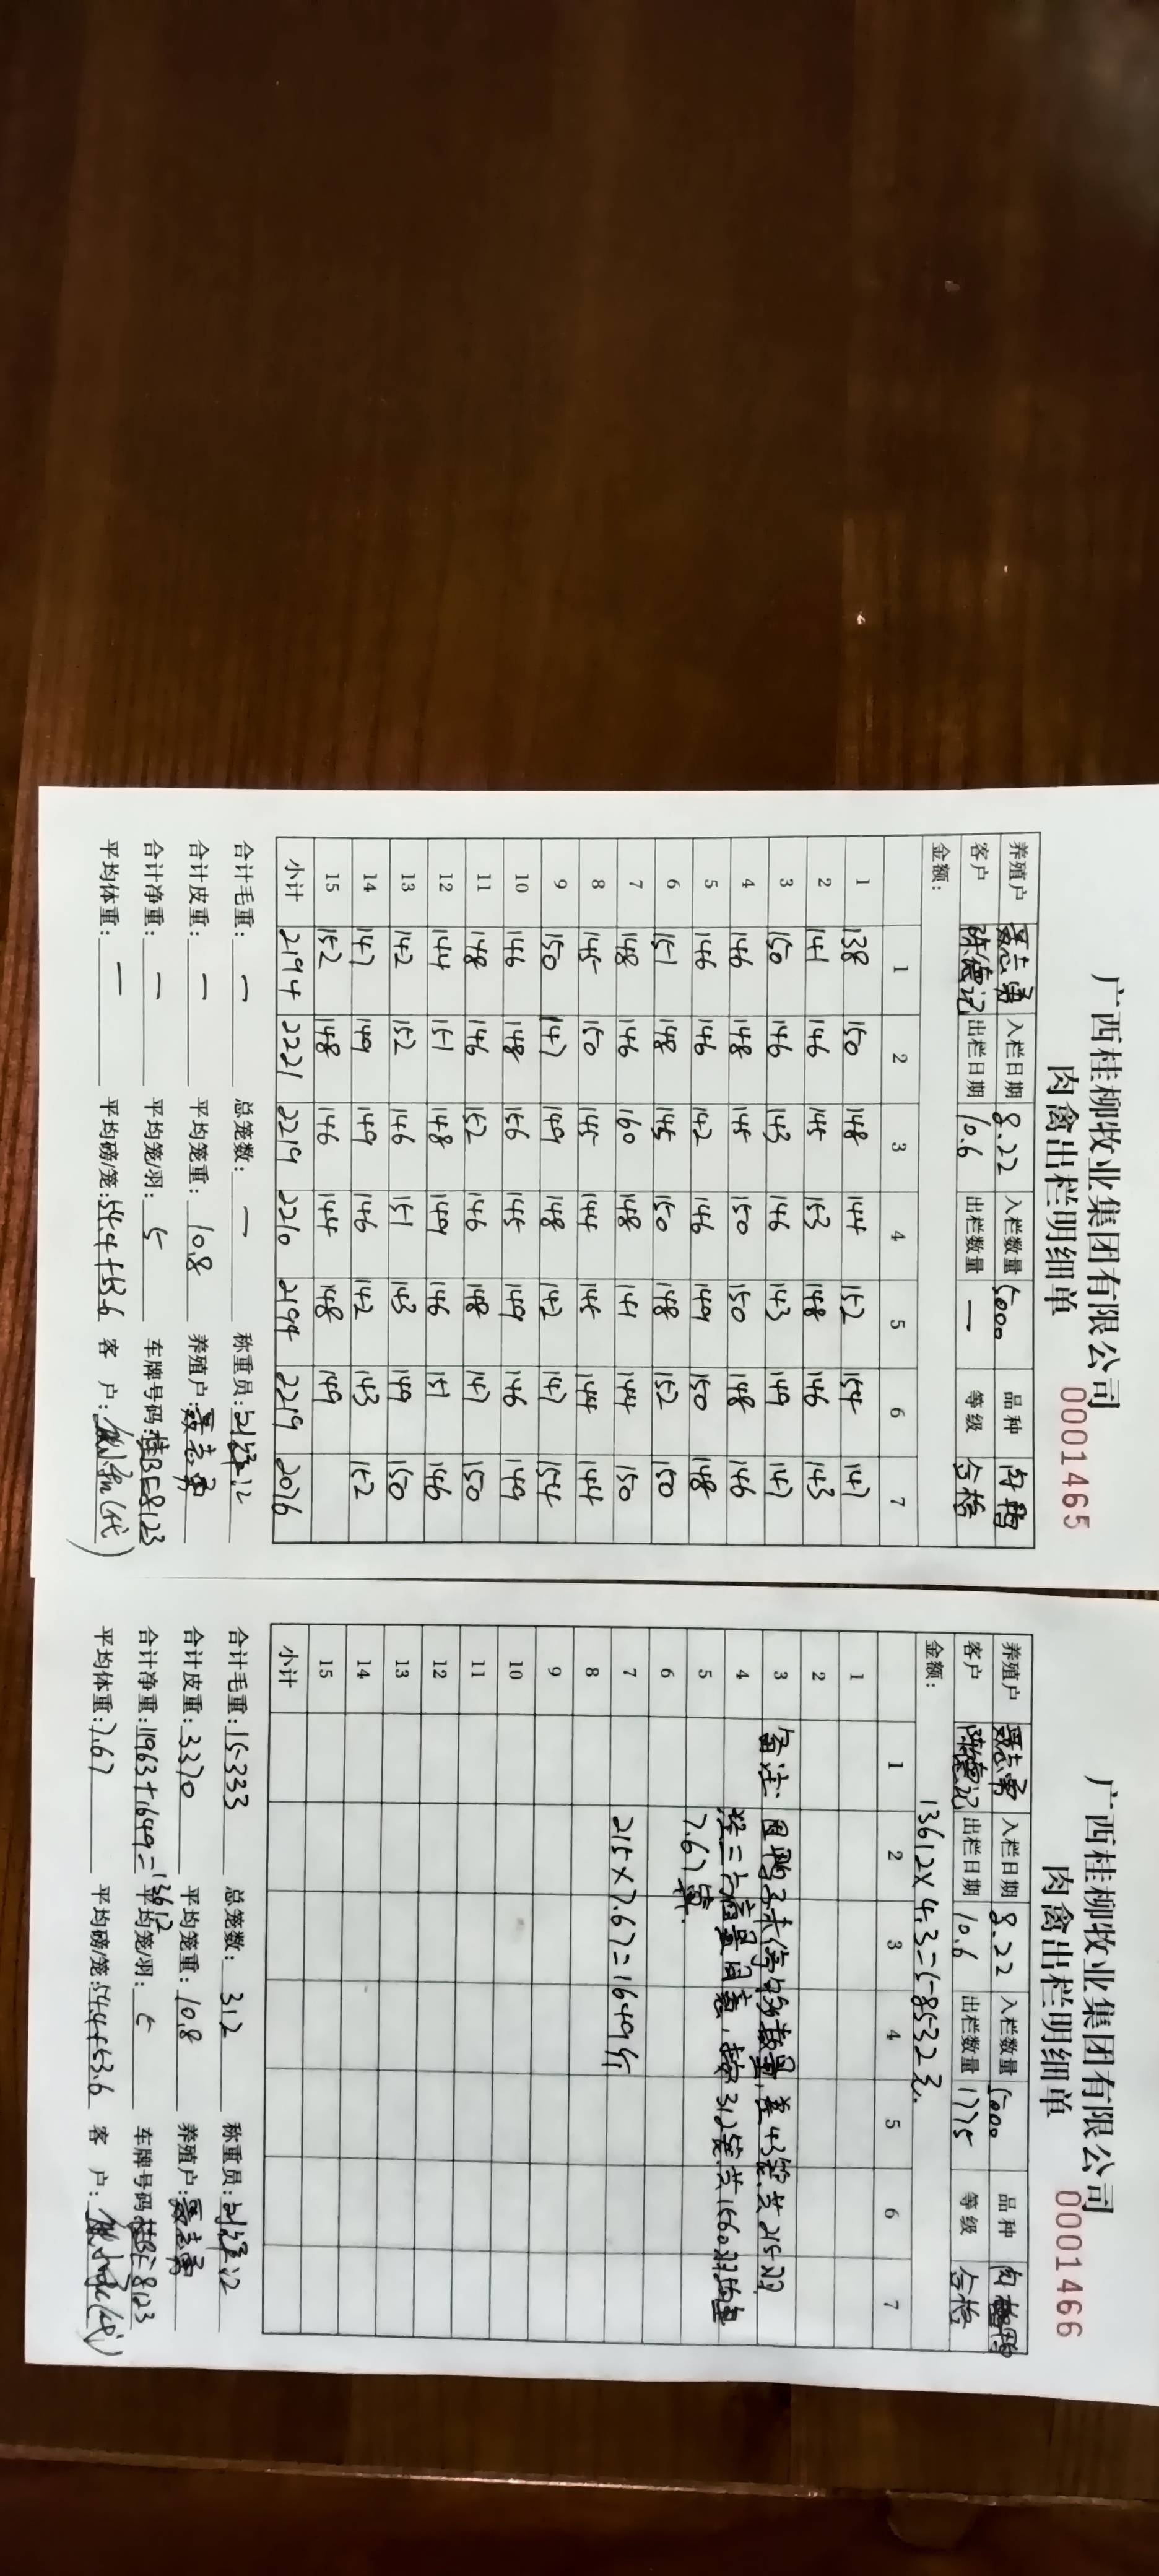 广西桂柳牧业集团有限公司
肉禽出栏明细单 0001465
养殖户 志勇 入栏日期 8.22 入栏数量 5000 品种 肉鸭
客户 陈德记 出栏日期 10.6 出栏数量 — 等级 合格
金额:
1 2 3 4 5 6 7
1 138 150 148 144 152 154 147
2 141 146 145 153 148 146 143
3 150 146 143 146 143 149 147
4 146 148 145 150 150 148 146
5 146 146 142 146 149 150 148
6 151 148 145 150 148 152 150
7 148 146 160 148 141 144 150
8 145 150 145 144 145 144 144
9 150 147 149 148 142 147 154
10 146 148 156 145 149 146 149
11 148 146 152 146 148 147 150
12 144 151 148 149 146 151 146
13 142 152 146 151 143 149 150
14 147 149 149 146 142 143 152
15 152 148 146 144 148 149
小计 2194 2221 2219 2210 2194 2219 2076
合计毛重: — 总笼数: — 称重员:
合计皮重: — 平均笼重: 10.8 养殖户: 志勇
合计净重: — 平均笼/羽: 5 车牌号码: 桂BE8123
平均体重: — 平均磅/笼: 54.4+53.6 客 户: (代)
广西桂柳牧业集团有限公司
肉禽出栏明细单 0001466
养殖户 志勇 入栏日期 8.22 入栏数量 5000 品种 肉鸭
客户 陈德记 出栏日期 10.6 出栏数量 1775 等级 合格
金额: 13612×4.3=58532元.
1 2 3 4 5 6 7
1
2
3 备注: 因鸭子未够数量,差43笼,共215羽
4 经三方商量同意,按312笼共1560羽均重
5 7.67算.
6
7 215×7.67=1649斤
8
9
10
11
12
13
14
15
小计
合计毛重: 15333 总笼数: 312 称重员:
合计皮重: 3370 平均笼重: 10.8 养殖户: 志勇
合计净重: 11963+1649=13612 平均笼/羽: 5 车牌号码: 桂BE8123
平均体重: 7.67 平均磅/笼: 54.4+53.6 客 户: (代)